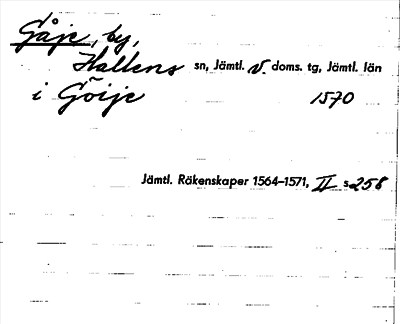 Gåje, by,
Hallens sn, Jämtl. v. doms. tg, Jämtl. län
i Gõije 1570
Jämtl. Räkenskaper 1564–1571, II s 258